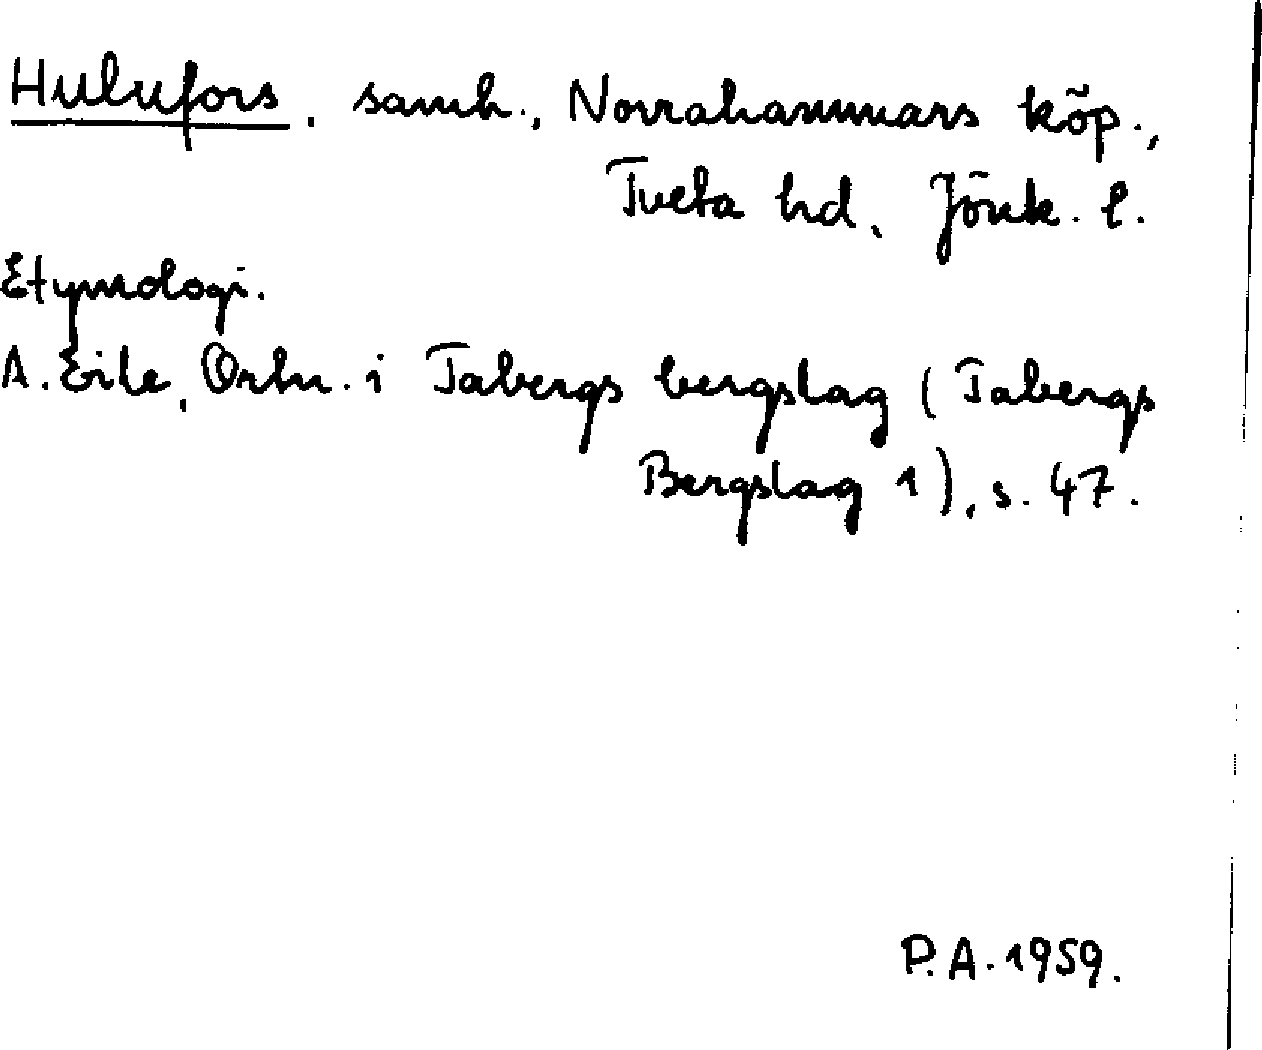 Hulufors, samh., Norrahammars köp.,
Tveta hd, Jönk. l.
Etymologi.
A. Eile, Ortn. i Tabergs bergslag (Tabergs
Bergslag 1), s. 47.
P.A. 1959.